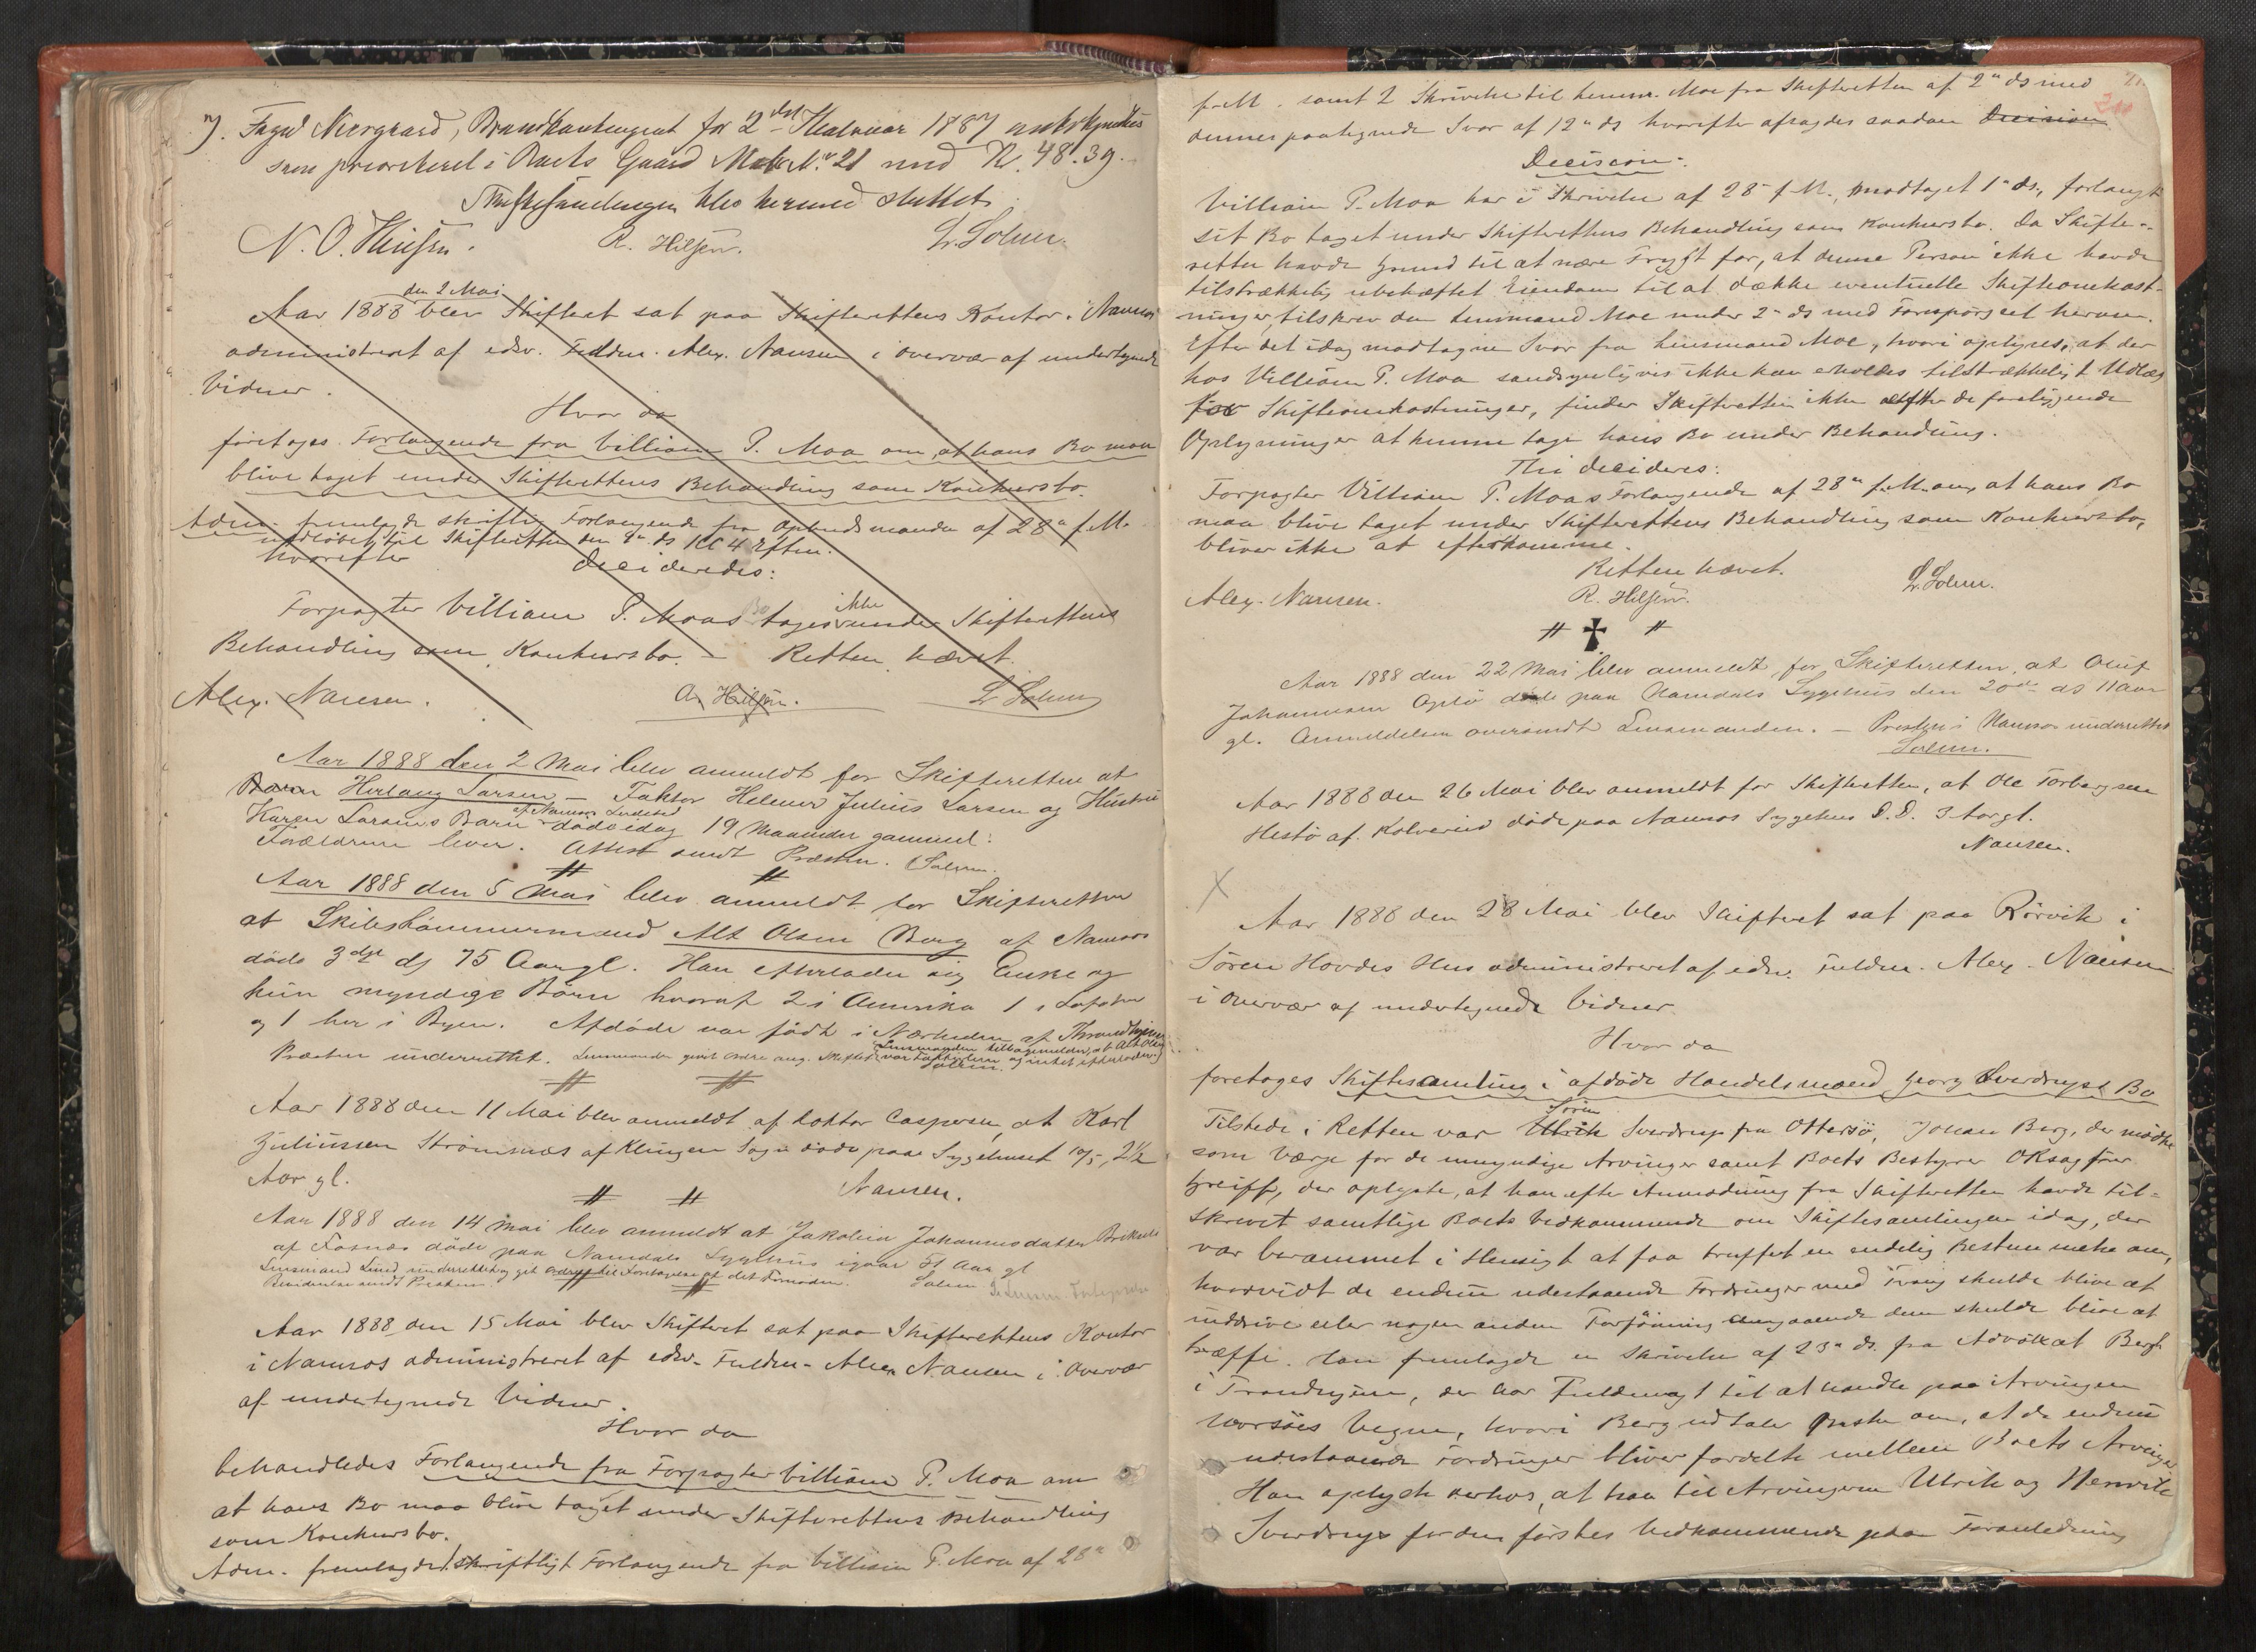 7. Foged Neergaard, Brandkontingent for 2det Halvaar 1887 
som prioriteret i Boets Gaard Matr. N.º 21 med Kr. 48.39.
Skiftesamlingen blev hermed sluttet.
R. Hilsen. L. Solem.
den 2 Mai
Aar 1888 blev Skifteret sat paa Skifterettens Kontor i Namsos
administreret af edsv. Fuldm. Alex. Nansen i overvær af undertegnede
Vidner.
Hvor da
foretoges Forlangende fra Villiam P. Moa om, at hans Bo maa
blive taget under Skifterettens Behandling som Konkursbo.
Adm. fremlagde skriftlig Forlangende fra Opbudsmanden af 28de f. M.
indløbet til Skifteretten den 1ste ds Kl 4 Eftm.
hvorefter decideredes:
ikke
Forpagter Villiam P. Moas Bo tages under Skifterettens
Behandling som Konkursbo. — Retten hævet.
Alex. Nansen. R. Hilsen. L. Solem
Aar 1888 den 2 Mai blev anmeldt for Skifteretten at
Barn Herlaug Larsen — Faktor Helmer Julius Larsen og Hustru
af Namsos Ladested
Karen Larsens Barn døde idag 19 Maaneder gammel.
Forældrene lever. Attest sendt Præsten. Solem.
Aar 1888 den 5 Mai blev anmeldt for Skifteretten
at Skibstømmermand Alt Olsen Berg af Namsos
døde 3die ds 75 Aar gl. Han efterlader sig Enke og
kun myndige Børn hvoraf 2 i Amerika 1 i Lofoten
og 1 her i Byen. Afdøde var født i Nærheden af Throndhjem
Præsten underrettet. Lensmanden givet Ordre ang. Skiftet
Lensmanden tilbagemelder, at Alt Olsen
var fattiglem og intet efterlader
Solem.
Aar 1888 den 11 Mai blev anmeldt af Doktor Caspersen, at Karl
Juliussen Strømsnæs af Klingen Sogn døde paa Sygehuset 10/5, 2½
Aar gl. Nansen.
Aar 1888 den 14 Mai blev anmeldt at Jakobia Johannesdatter
af Fosnæs døde paa Namdals Sygehus igaar 71 Aar gl
Lensmand Lund underrettet og git Ordre til Foretagelse af det Fornødne.
sendt Præsten. Solem
Aar 1888 den 15 Mai blev Skifteret sat paa Skifterettens Kontor
i Namsos administreret af edsv. Fuldm. Alex. Nansen i Overvær
af undertegnede Vidner.
Hvor da
behandledes Forlangende fra Forpagter Villiam P. Moa om
at hans Bo maa blive taget under Skifterettens Behandling
som Konkursbo.
Adm. fremlagde skriftligt Forlangende fra Villiam P. Moa af 28de
f. M. samt 2 Skrivelse til Lensm. Moe fra Skifteretten af 2den ds med
dennes paategnede Svar af 12te ds hvorefter afsagdes saadan Decision
Decision:
Villiam P. Moa har i Skrivelse af 28de f. M., modtaget 1ste ds., forlangt
sit Bo taget under Skifterettens Behandling som Konkursbo. Da Skifte-
retten havde Grund til at nære Frygt for, at denne Person ikke havde
tilstrækkelig ubehæftet Eiendom til at dække eventuelle Skifteomkost-
ninger, tilskrev den Lensmand Moe under 2den ds med Forespørgsel herom.
Efter det idag modtagne Svar fra Lensmand Moe, hvori oplyses, at der
hos Villiam P. Moa sandsynligvis ikke kan erholdes tilstrækkeligt Udlæg
for Skifteomkostninger, finder Skifteretten ikke efter de foreliggende
Oplysninger at kunne tage hans Bo under Behandling.
Thi decideres:
Forpagter Villiam P. Moas Forlangende af 28de f. M. om, at hans Bo
maa blive taget under Skifterettens Behandling som Konkursbo,
bliver ikke at efterkomme.
Retten hævet.
Alex. Nansen. R. Hilsen. L. Solem.
Aar 1888 den 22 Mai blev anmeldt for Skifteretten, at Oluf
Johannesen Oplø døde paa Namdals Sygehus den 20de ds 11 Aar
gl. Anmeldelsen oversendt Lensmanden. — Præsten i Namsos underrettet
Solem.
Aar 1888 den 26 Mai blev anmeldt for Skifteretten, at Ole Torbergsen
Hestø af Kolvereid døde paa Namsos Sygehus D. D. 3 Aar gl.
Nansen.
Aar 1888 den 28 Mai blev Skifteret sat paa Rørvik i
Søren Hovdes Hus administreret af edsv. Fuldm. Alex. Nansen
i Overvær af undertegnede Vidner.
Hvor da
foretoges Skiftesamling i afdøde Handelsmand Georg Sverdrups Bo
Søren
Tilstede i Retten var Ulrik Sverdrup fra Ottersø, Johan Berg, der mødte
som Værge for de umyndige Arvinger samt Boets Bestyrer OKsagfører
Greiff, der oplyste, at han efter Anmodning fra Skifteretten havde til-
skrevet samtlige Boets Vedkommende om Skiftesamlingen idag, der
var berammet i Hensigt at faa truffet en endelig Bestemmelse om,
hvorvidt de endnu udestaaende Fordringer med Tvang skulde blive at
inddrive eller nogen anden Forføining angaaende dem skulde blive at
træffe. Han fremlagde en Skrivelse af 23de ds. fra Advokat Berg
i Trondhjem, der har Fuldmagt til at handle paa Arvingen
Worsøes Vegne, hvori Berg udtaler Ønske om, at de endnu
udestaaende Fordringer bliver fordelte mellem Boets Arvinger
Han oplyste derhos, at han til Arvingerne Ulrik og Henrik
Sverdrup for den førstes Vedkommende paa Foranledning